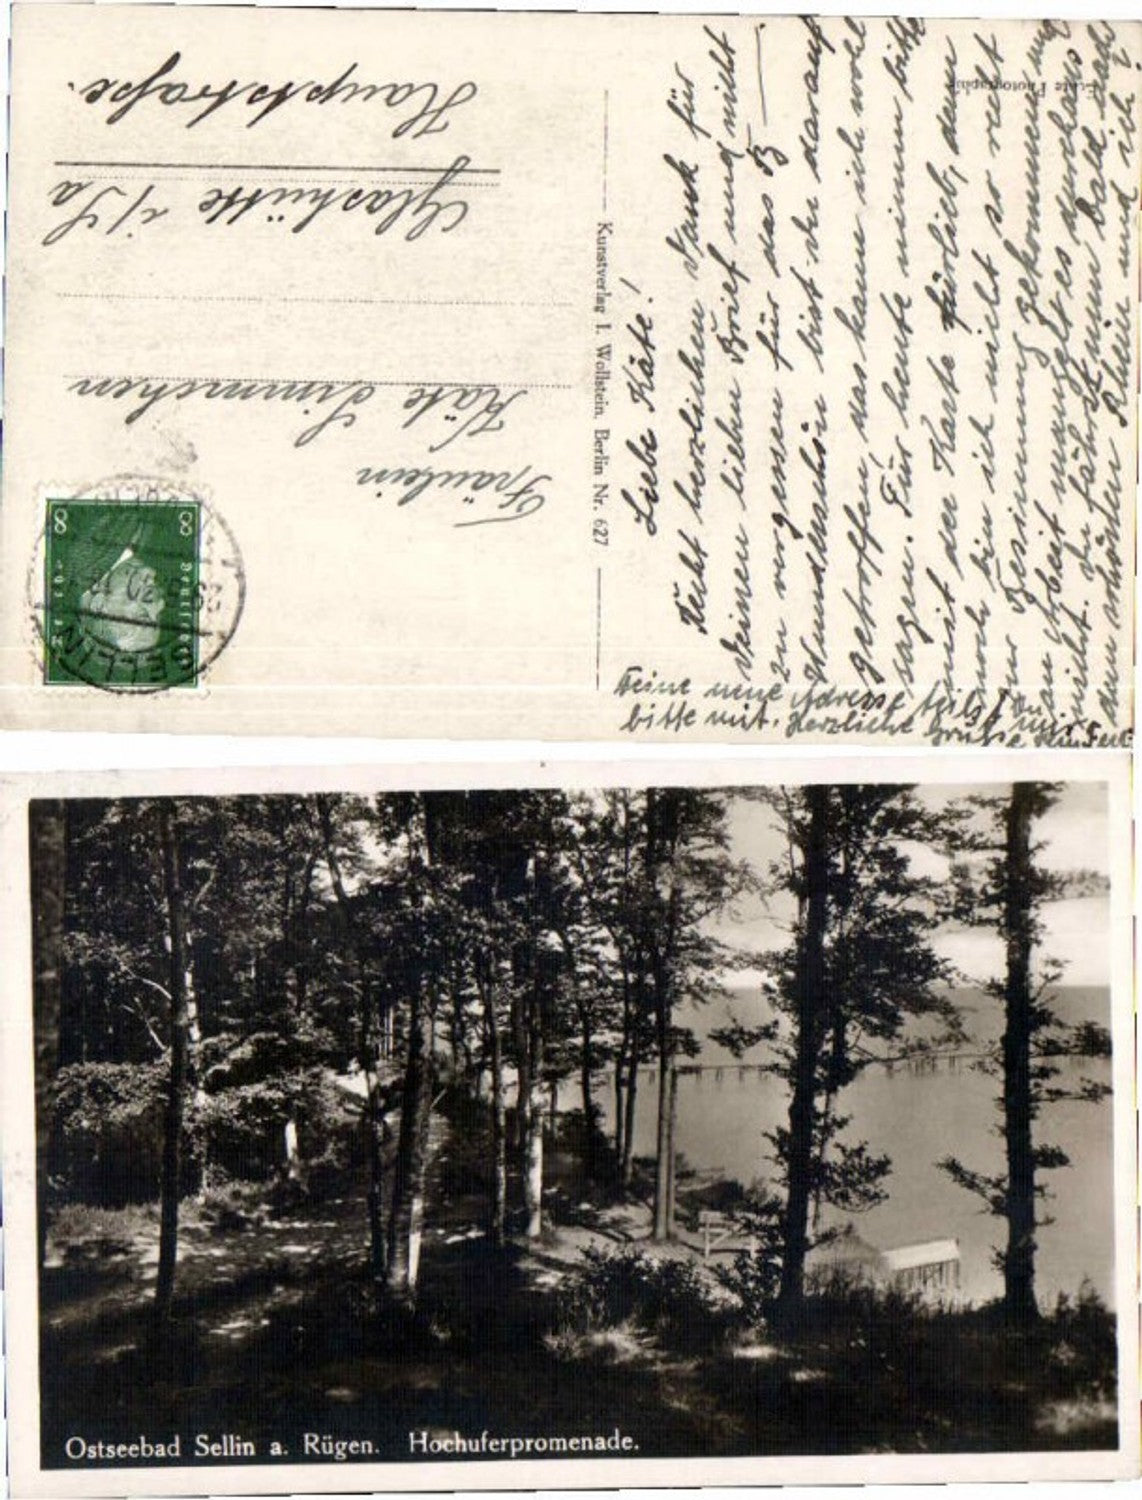 Liebe Käte!
Recht herzlichen Dank für
Deinen lieben Brief und nicht
zu vergessen für das B
Wunderschön bist du darauf
getroffen, das kann ich wohl
sagen. Für heute nimm bitte
mit der Karte fürlieb, denn
noch bin ich nicht so recht
zur Besinnung gekommen und
an Arbeit mangelt es durchaus
nicht. Du fährst nun bald nach
dem schönen Rhein und ich?
Deine neue Adresse teilst Du mir
bitte mit. Herzliche Grüße
Echte Photographie
Kunstverlag I. Wollstein, Berlin Nr. 627
SELLIN
8 8
Fräulein
Käte Simmchen
Glashütte i/Sa
Hauptstraße.
Ostseebad Sellin a. Rügen. Hochuferpromenade.